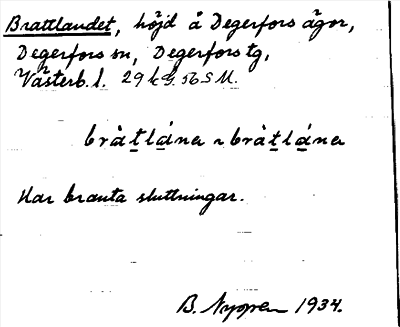 Brattlandet, höjd å Degerfors ägor,
Degerfors sn, Degerfors tg,
Västerb. l. 29 k G. 56 S M.
bràtlána ~ bràtlána
Har branta sluttningar.
B. 1934.